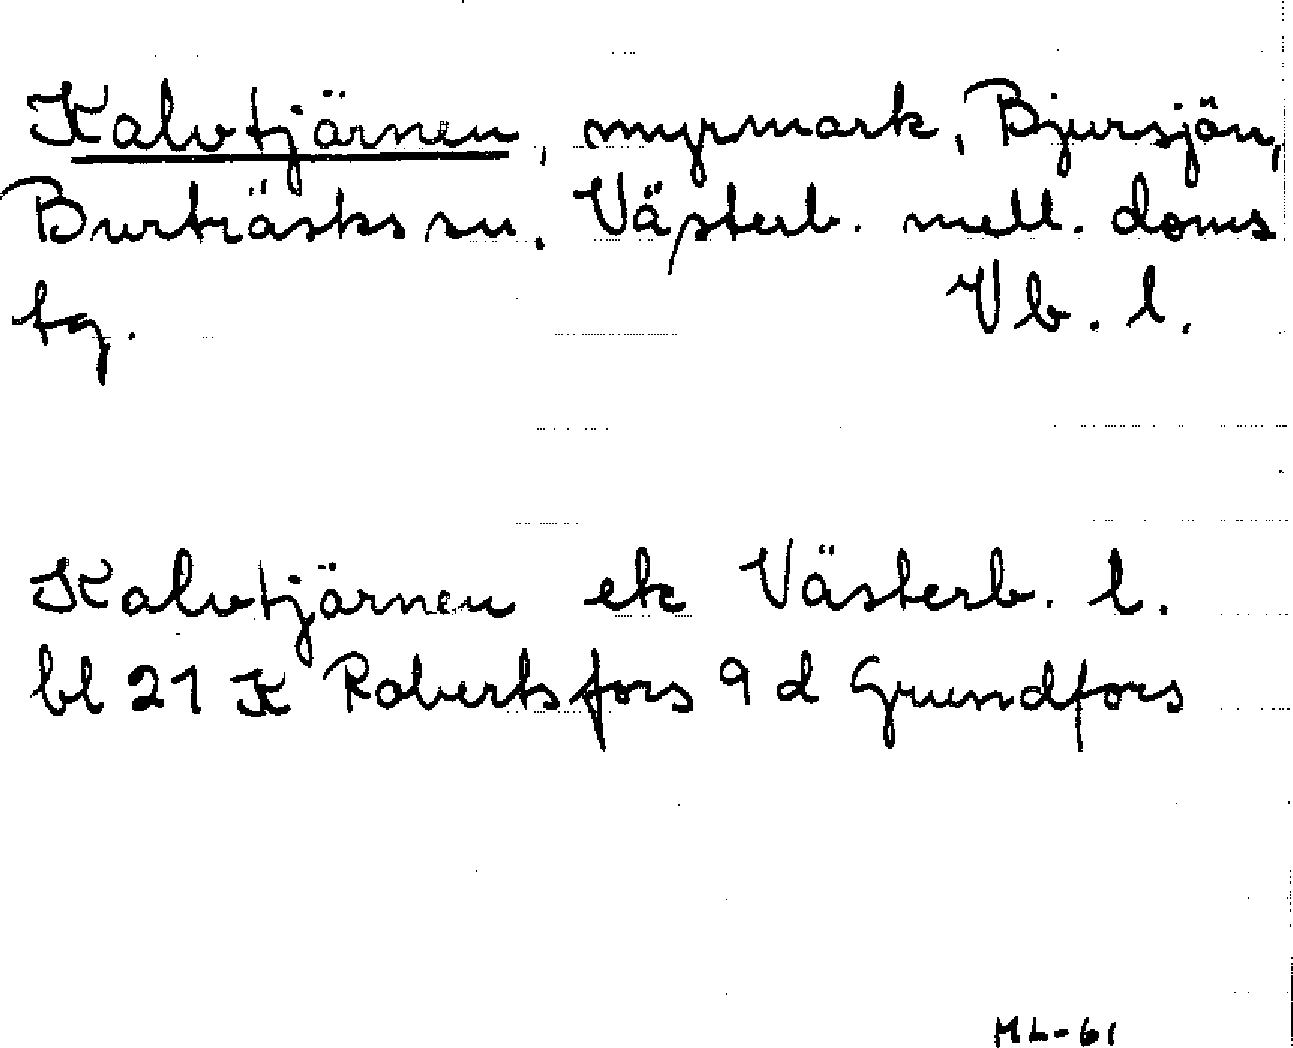 Kalvtjärnen, myrmark, Bjursjön,
Burträsks sn, Västerb. mell. doms
tg. Vb. l.
Kalvtjärnen ek Västerb. l.
bl 21 K Robertsfors 9 d Grundfors
ML-61